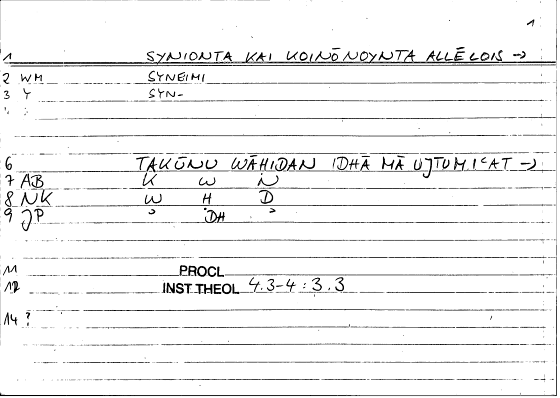 1
1 SYNIONTA KAI KOINŌNOYNTA ALLĒLOIS →
2 WM SYNEIMI
3 Y SYN-
6 TAKŪNU WĀHIDAN IDHĀ MĀ UJTUMIʿAT →
7 AB K W N
8 NK W H D
9 JP DH
11 PROCL
12 INST THEOL 4.3-4 : 3.3
14 ?